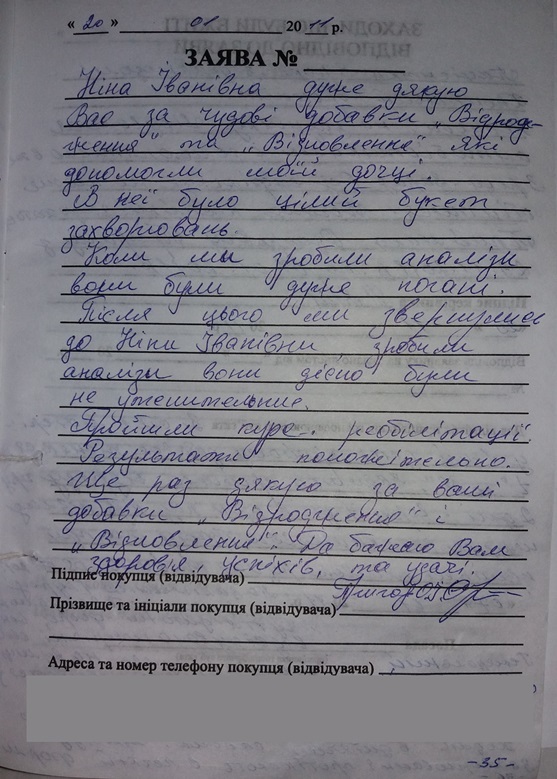 « 20 » 01 2011 р.
ЗАЯВА №
Ніна Іванівна дуже дякую
Вас за чудові добавки „Відрод-
ження" та „Відновлення" які
допомогли моїй дочці.
В неї було цілий букет
захворювань.
Коли ми зробили аналізи
вони були дуже погані.
Після цього ми звернулися
до Ніни Іванівни зробили
аналізи вони дієно були
не утешительние.
Пройшли курс реабілітації.
Результати положітельно.
Ще раз дякую за ваші
добавки „Відродження" і
„Відновлення". Да бажаю Вам
здоров'я, успіхів, та удачі.
Підпис покупця (відвідувача)
Прізвище та ініціали покупця (відвідувача)
Адреса та номер телефону покупця (відвідувача)
-35-